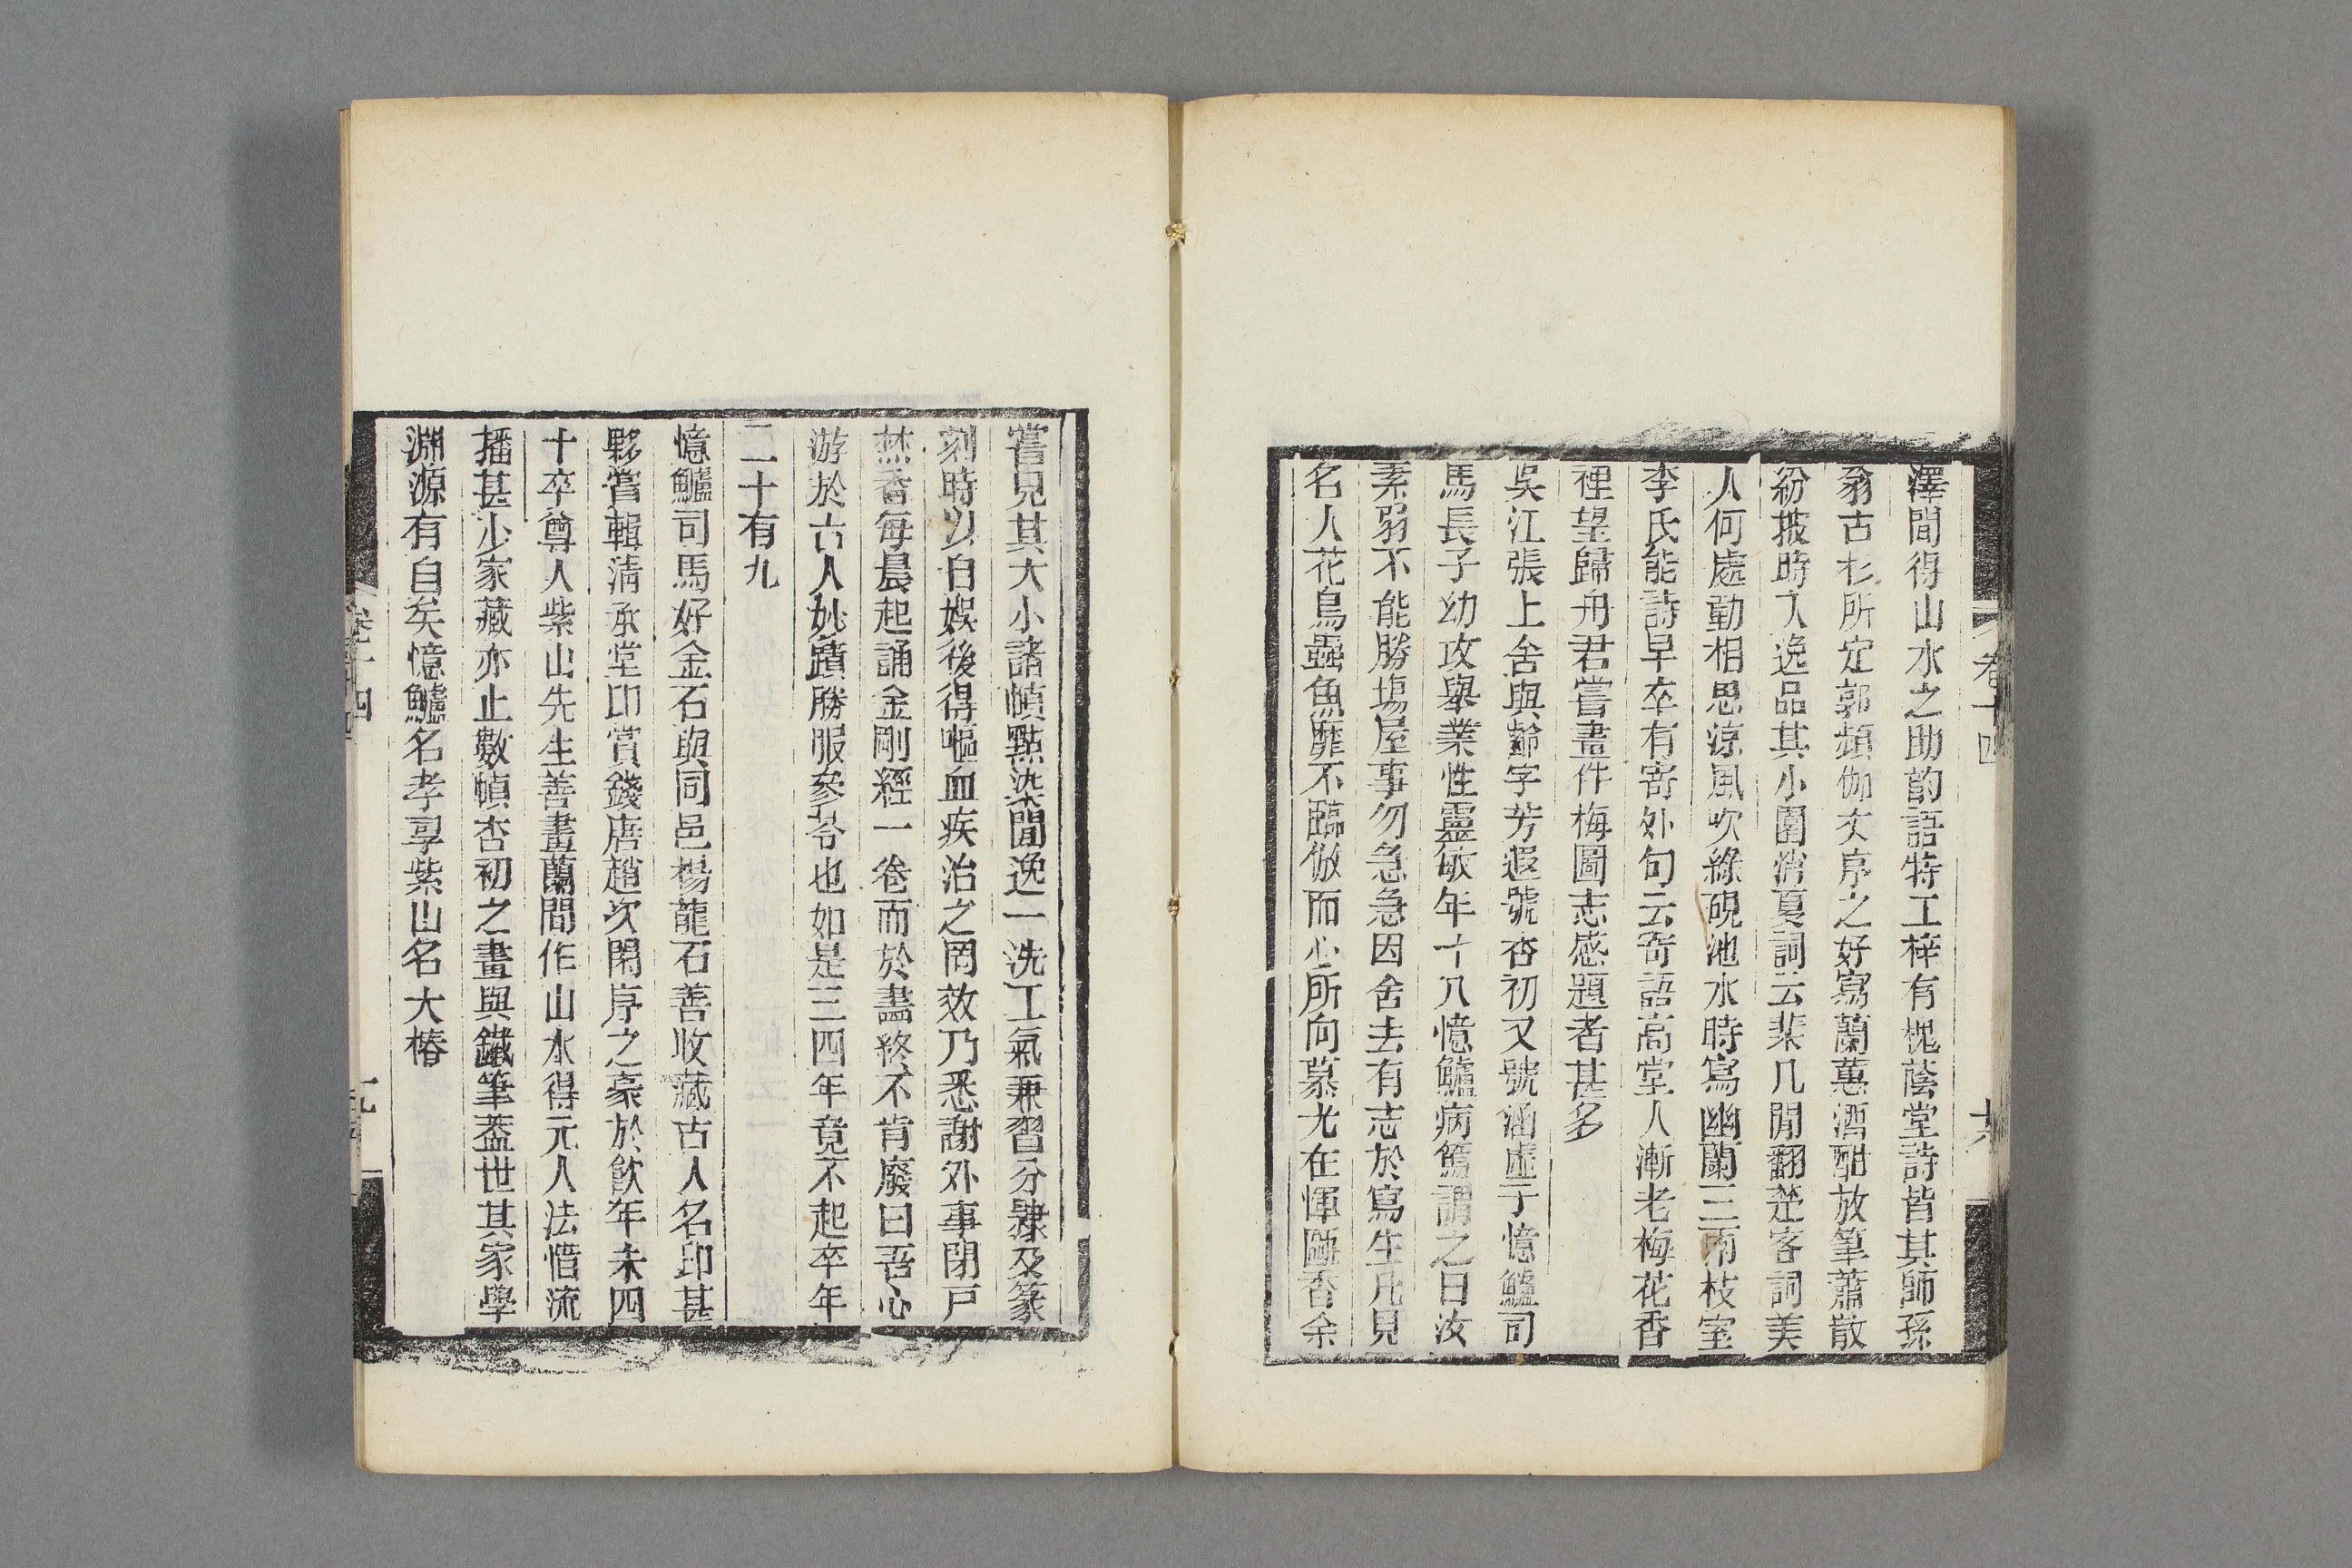 澤間得山水之助韵語特工梓有槐蔭堂詩皆其師孫
翁古杉所定郭頻伽丈序之好寫蘭蕙酒酣放筆蕭散
紛披時入逸品其小園消夏詞云棐几閒翻楚客詞美
人何處動相思涼風吹綠硯池水時寫幽蘭三兩枝室
李氏能詩早卒有寄外句云寄語高堂人漸老梅花香
裡望歸舟君嘗畫伴梅圖志感題者甚多
吳江張上舍與齡字芳遐號杏初又號涵虛子憶鱸司
馬長子幼攻舉業性靈敏年十八憶鱸病篤謂之曰汝
素弱不能勝塲屋事勿急急因舍去有志於寫生凡見
名人花鳥蟲魚靡不臨倣而心所向慕尤在惲甌香余
卷十四
嘗見其大小諸幀點染閒逸一洗工氣兼習分隸及篆
刻時以自娛後得嘔血疾治之罔效乃悉謝外事閉戸
焚香每晨起誦金剛經一卷而於畫終不肯廢曰吾心
游於古人妙蹟勝服參苓也如是三四年竟不起卒年
二十有九
憶鱸司馬好金石與同邑楊龍石善收藏古人名印甚
夥嘗輯淸承堂印賞錢唐趙次閑序之豪於飮年未四
十卒尊人紫山先生善畫蘭間作山水得元人法惜流
播甚少家藏亦止數幀杏初之畫與鐵筆蓋世其家學
淵源有自矣憶鱸名孝享紫山名大椿
卷十四